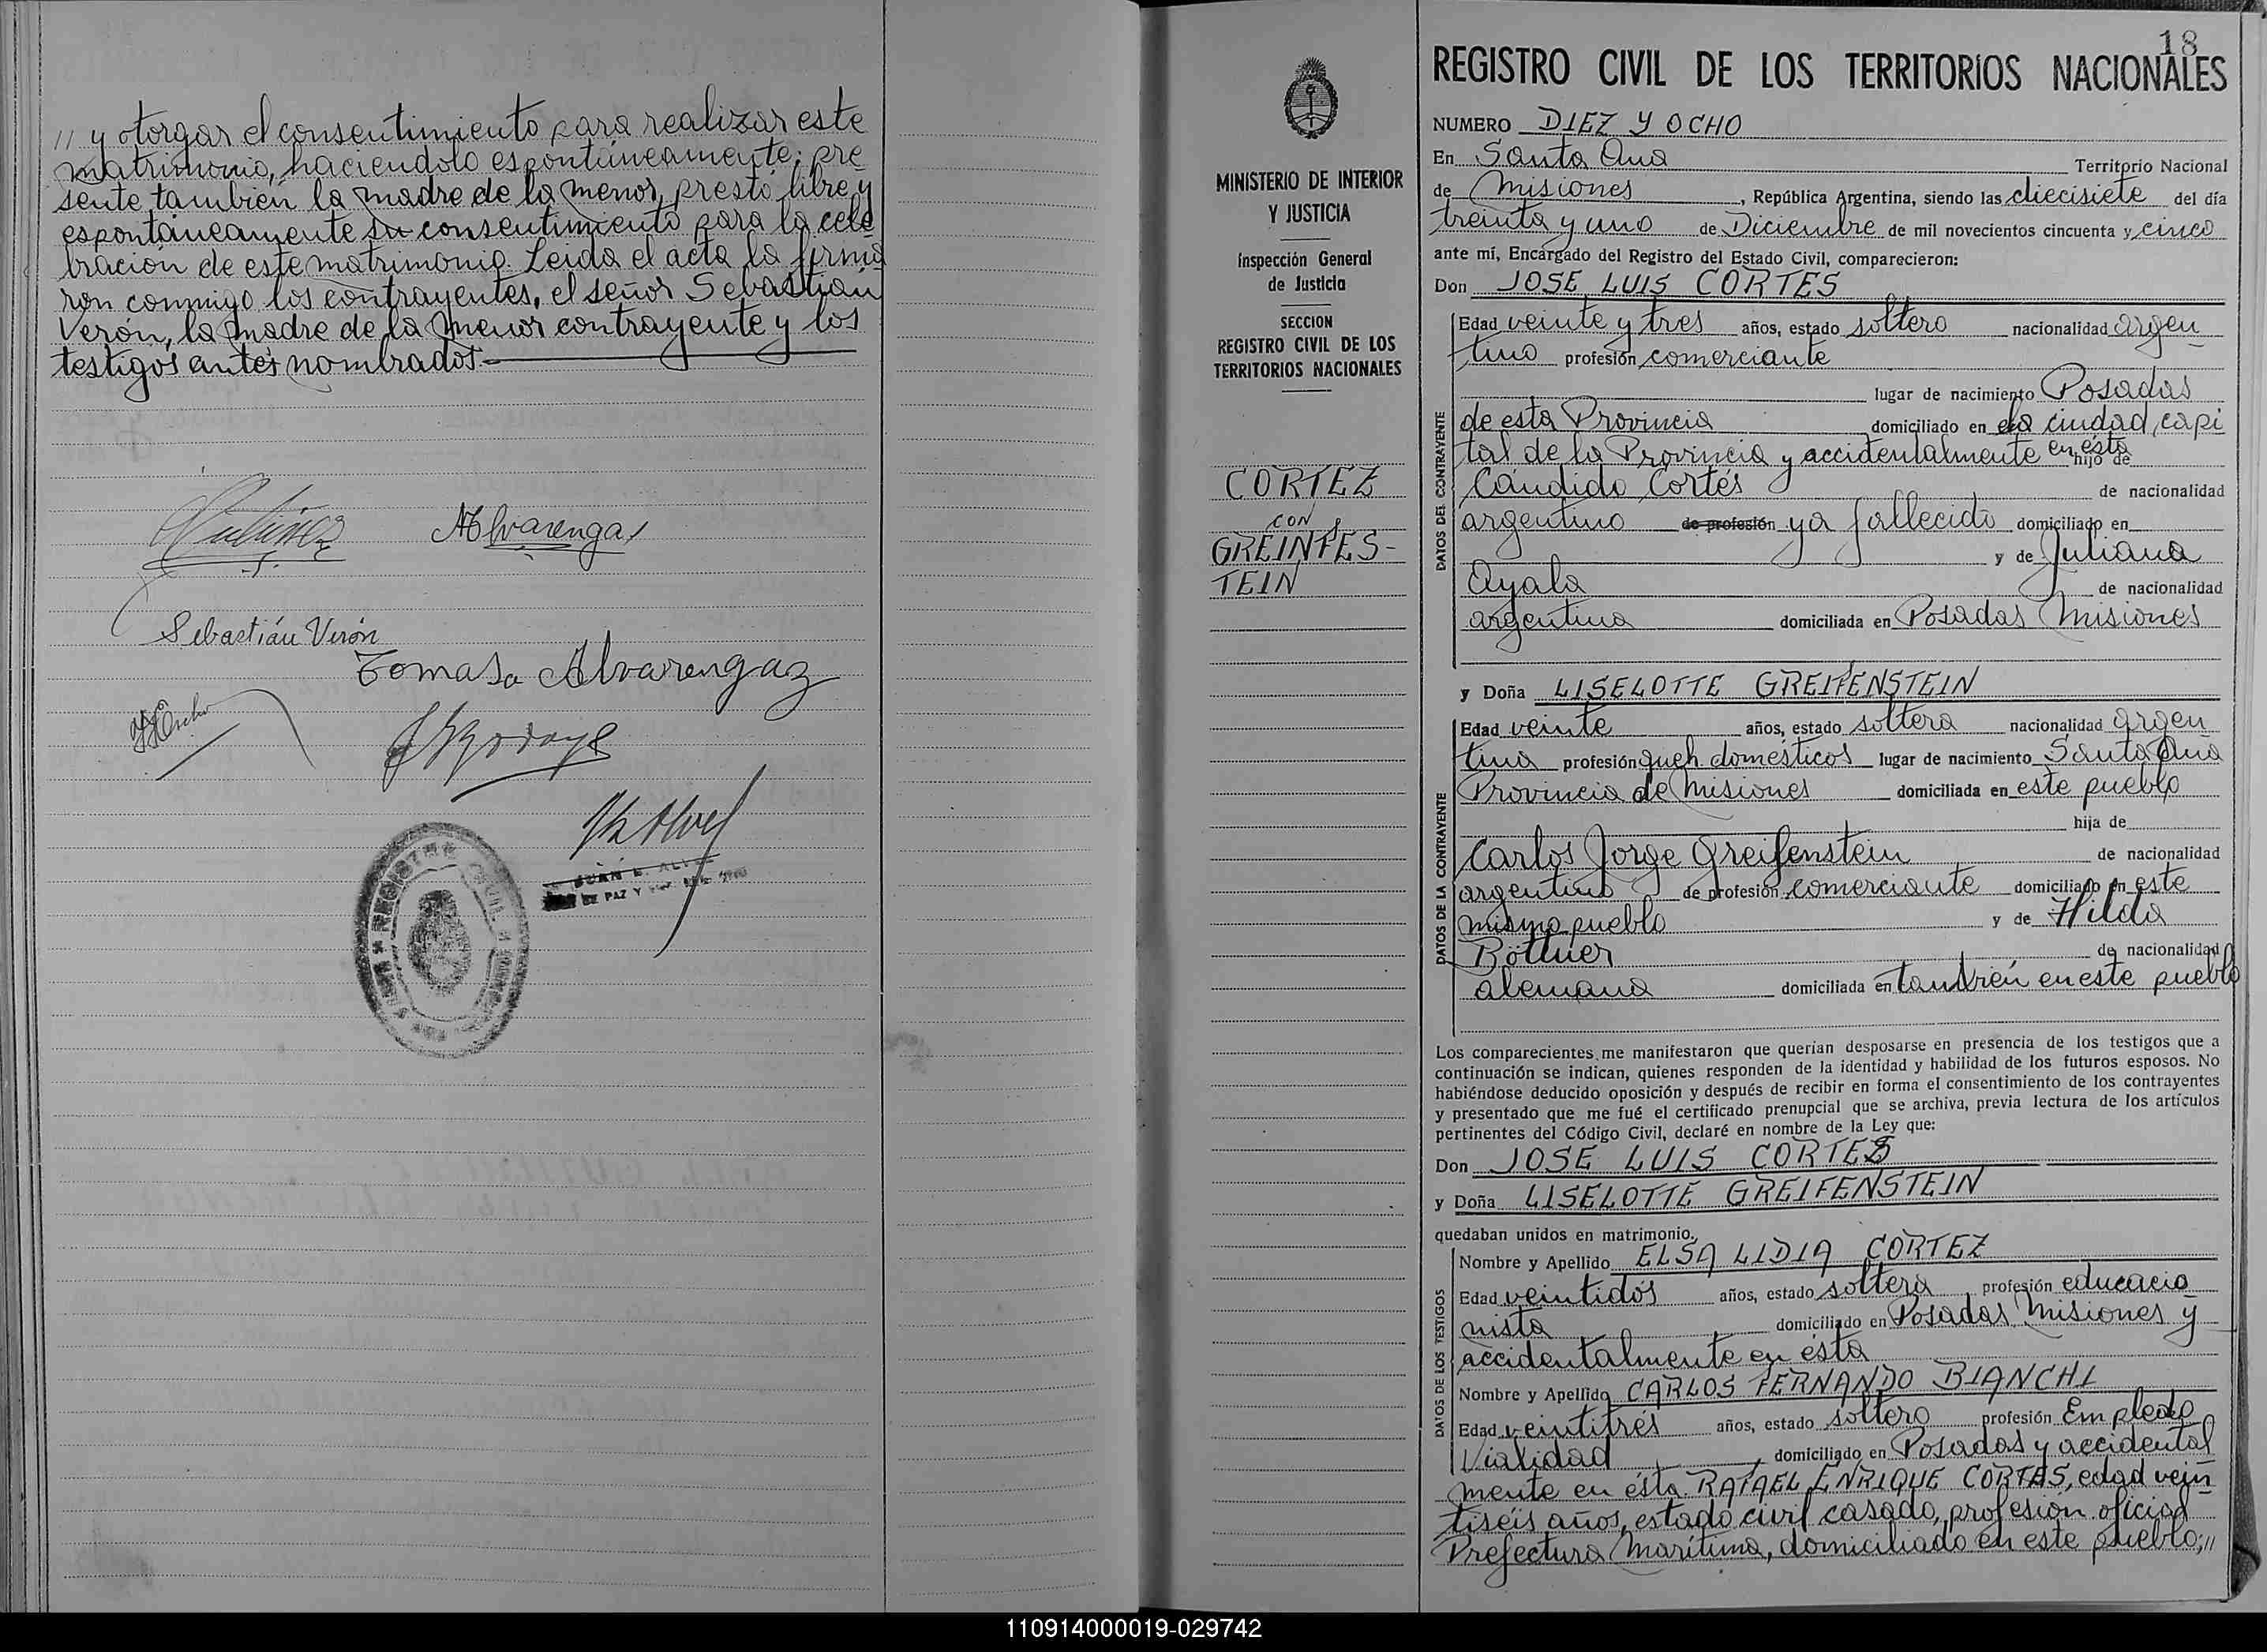 // y otorgar el consentimiento para realizar este
matrimonio, haciendolo espontáneamente; pre
sente también la madre de la menor, prestó libre y
espontáneamente su consentimiento para la cele
bración de este matrimonio. Leida el acta la firma
ron conmigo los contrayentes, el señor Sebastián
Verón, la madre de la menor contrayente y los
testigos antes nombrados.
Alvarenga
Sebastián Verón
Tomasa Alvarengaz
REGISTRO CIVIL
JUAN
DE PAZ Y
MINISTERIO DE INTERIOR
Y JUSTICIA
Inspección General
de Justicia
SECCION
REGISTRO CIVIL DE LOS
TERRITORIOS NACIONALES
CORTEZ
CON
GREINFES-
TEIN
18
REGISTRO CIVIL DE LOS TERRITORIOS NACIONALES
NUMERO DIEZ Y OCHO
En Santa Ana Territorio Nacional
de Misiones, República Argentina, siendo las diecisiete del día
treinta y uno de Diciembre de mil novecientos cincuenta y cinco
ante mí, Encargado del Registro del Estado Civil, comparecieron:
Don JOSE LUIS CORTES
DATOS DEL CONTRAYENTE
Edad veinte y tres años, estado soltero nacionalidad argen
tino profesión comerciante
lugar de nacimiento Posadas
de esta Provincia domiciliado en la ciudad, capi
tal de la Provincia y accidentalmente en ésta hijo de
Cándido Cortés de nacionalidad
argentino de profesión ya fallecido domiciliado en
y de Juliana
Ayala de nacionalidad
argentina domiciliada en Posadas Misiones
y Doña LISELOTTE GREIFENSTEIN
DATOS DE LA CONTRAYENTE
Edad veinte años, estado soltera nacionalidad argen
tina profesión queh. domésticos lugar de nacimiento Santa Ana
Provincia de Misiones domiciliada en este pueblo
hija de
Carlos Jorge Greifenstein de nacionalidad
argentino de profesión comerciante domiciliado en este
mismo pueblo y de Hilda
Böttner de nacionalidad
alemana domiciliada en también en este pueblo
Los comparecientes me manifestaron que querían desposarse en presencia de los testigos que a
continuación se indican, quienes responden de la identidad y habilidad de los futuros esposos. No
habiéndose deducido oposición y después de recibir en forma el consentimiento de los contrayentes
y presentado que me fué el certificado prenupcial que se archiva, previa lectura de los artículos
pertinentes del Código Civil, declaré en nombre de la Ley que:
Don JOSE LUIS CORTES
y Doña LISELOTTE GREIFENSTEIN
quedaban unidos en matrimonio.
DATOS DE LOS TESTIGOS
Nombre y Apellido ELSA LIDIA CORTEZ
Edad veintidós años, estado soltera profesión educacio
nista domiciliado en Posadas Misiones y
accidentalmente en ésta
Nombre y Apellido CARLOS FERNANDO BIANCHI
Edad veintitrés años, estado soltero profesión Empleado
Vialidad, domiciliado en Posadas y accidental
mente en ésta RAFAEL ENRIQUE CORTES, edad vein
tiséis años, estado civil casado, profesión oficial
Prefectura Marítima, domiciliado en este pueblo;//
110914000019-029742